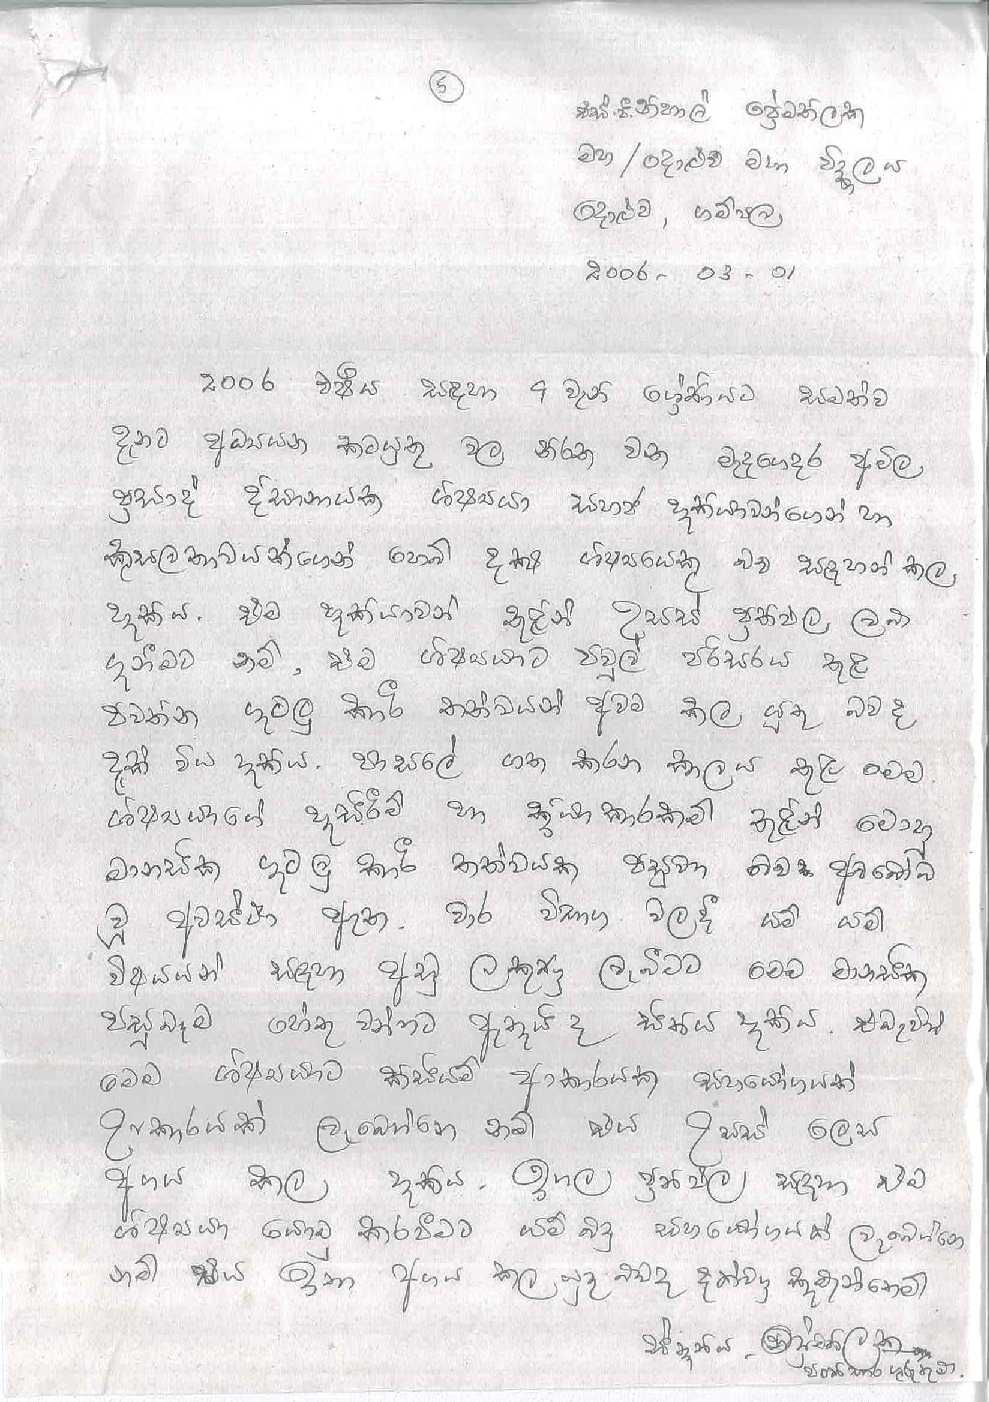 5
එස්.පී.නිහාල් ප්‍රේමතිලක
මහ/දොළුව මහා විද්‍යාලය
දොළුව, ගම්පල
2006 - 03 - 01
2006 වර්ෂය සඳහා 9 වැනි ශ්‍රේණියට සමත්ව
දැනට අධ්‍යයන කටයුතු වල නිරත වන මැදගෙදර අමිල
ප්‍රසාද් දිසානායක ශිෂ්‍යයා සහජ හැකියාවන්ගෙන් හා
කුසලතාවයන්ගෙන් හෙබි දක්ෂ ශිෂ්‍යයෙකු බව සඳහන් කල
හැකිය. එම හැකියාවන් තුළින් උසස් ප්‍රතිඵල ලබා
ගැනීමට නම්, එම ශිෂ්‍යයාට පවුල් පරිසරය තුළ
පවත්නා ගැටලු කාරී තත්වයන් අවම කල යුතු බව ද
දැක් විය හැකිය. පාසලේ ගත කරන කාලය තුළ මෙම
ශිෂ්‍යයාගේ හැසිරීම් හා ක්‍රියාකාරකම් තුළින් මොහු
මානසික ගැටලු කාරී තත්වයක පසුවන බවක් අවබෝධ
වූ අවස්ථා ඇත. වාර විභාග වලදී යම් යම්
විෂයයන් සඳහා අඩු ලකුණු ලැබීමට මෙම මානසික
පසුබෑම හේතු වන්නට ඇතැයි ද සිතිය හැකිය. එබැවින්
මෙම ශිෂ්‍යයාට කිසියම් ආකාරයක සහයෝගයක්
උපකාරයක් ලැබෙන්නේ නම් එය උසස් ලෙස
අගය කල හැකිය. ඉහල ප්‍රතිඵල සඳහා එම
ශිෂ්‍යයා යොමු කරවීමට යම් කිසි සහයෝගයක් ලැබෙන්නේ
නම් එය ඉතා අගය කල යුතු බවද දන්වනු කැමැත්තෙමි
මේකට, ප්‍රේමතිලක
පන්තිභාර ගුරුතුමා.